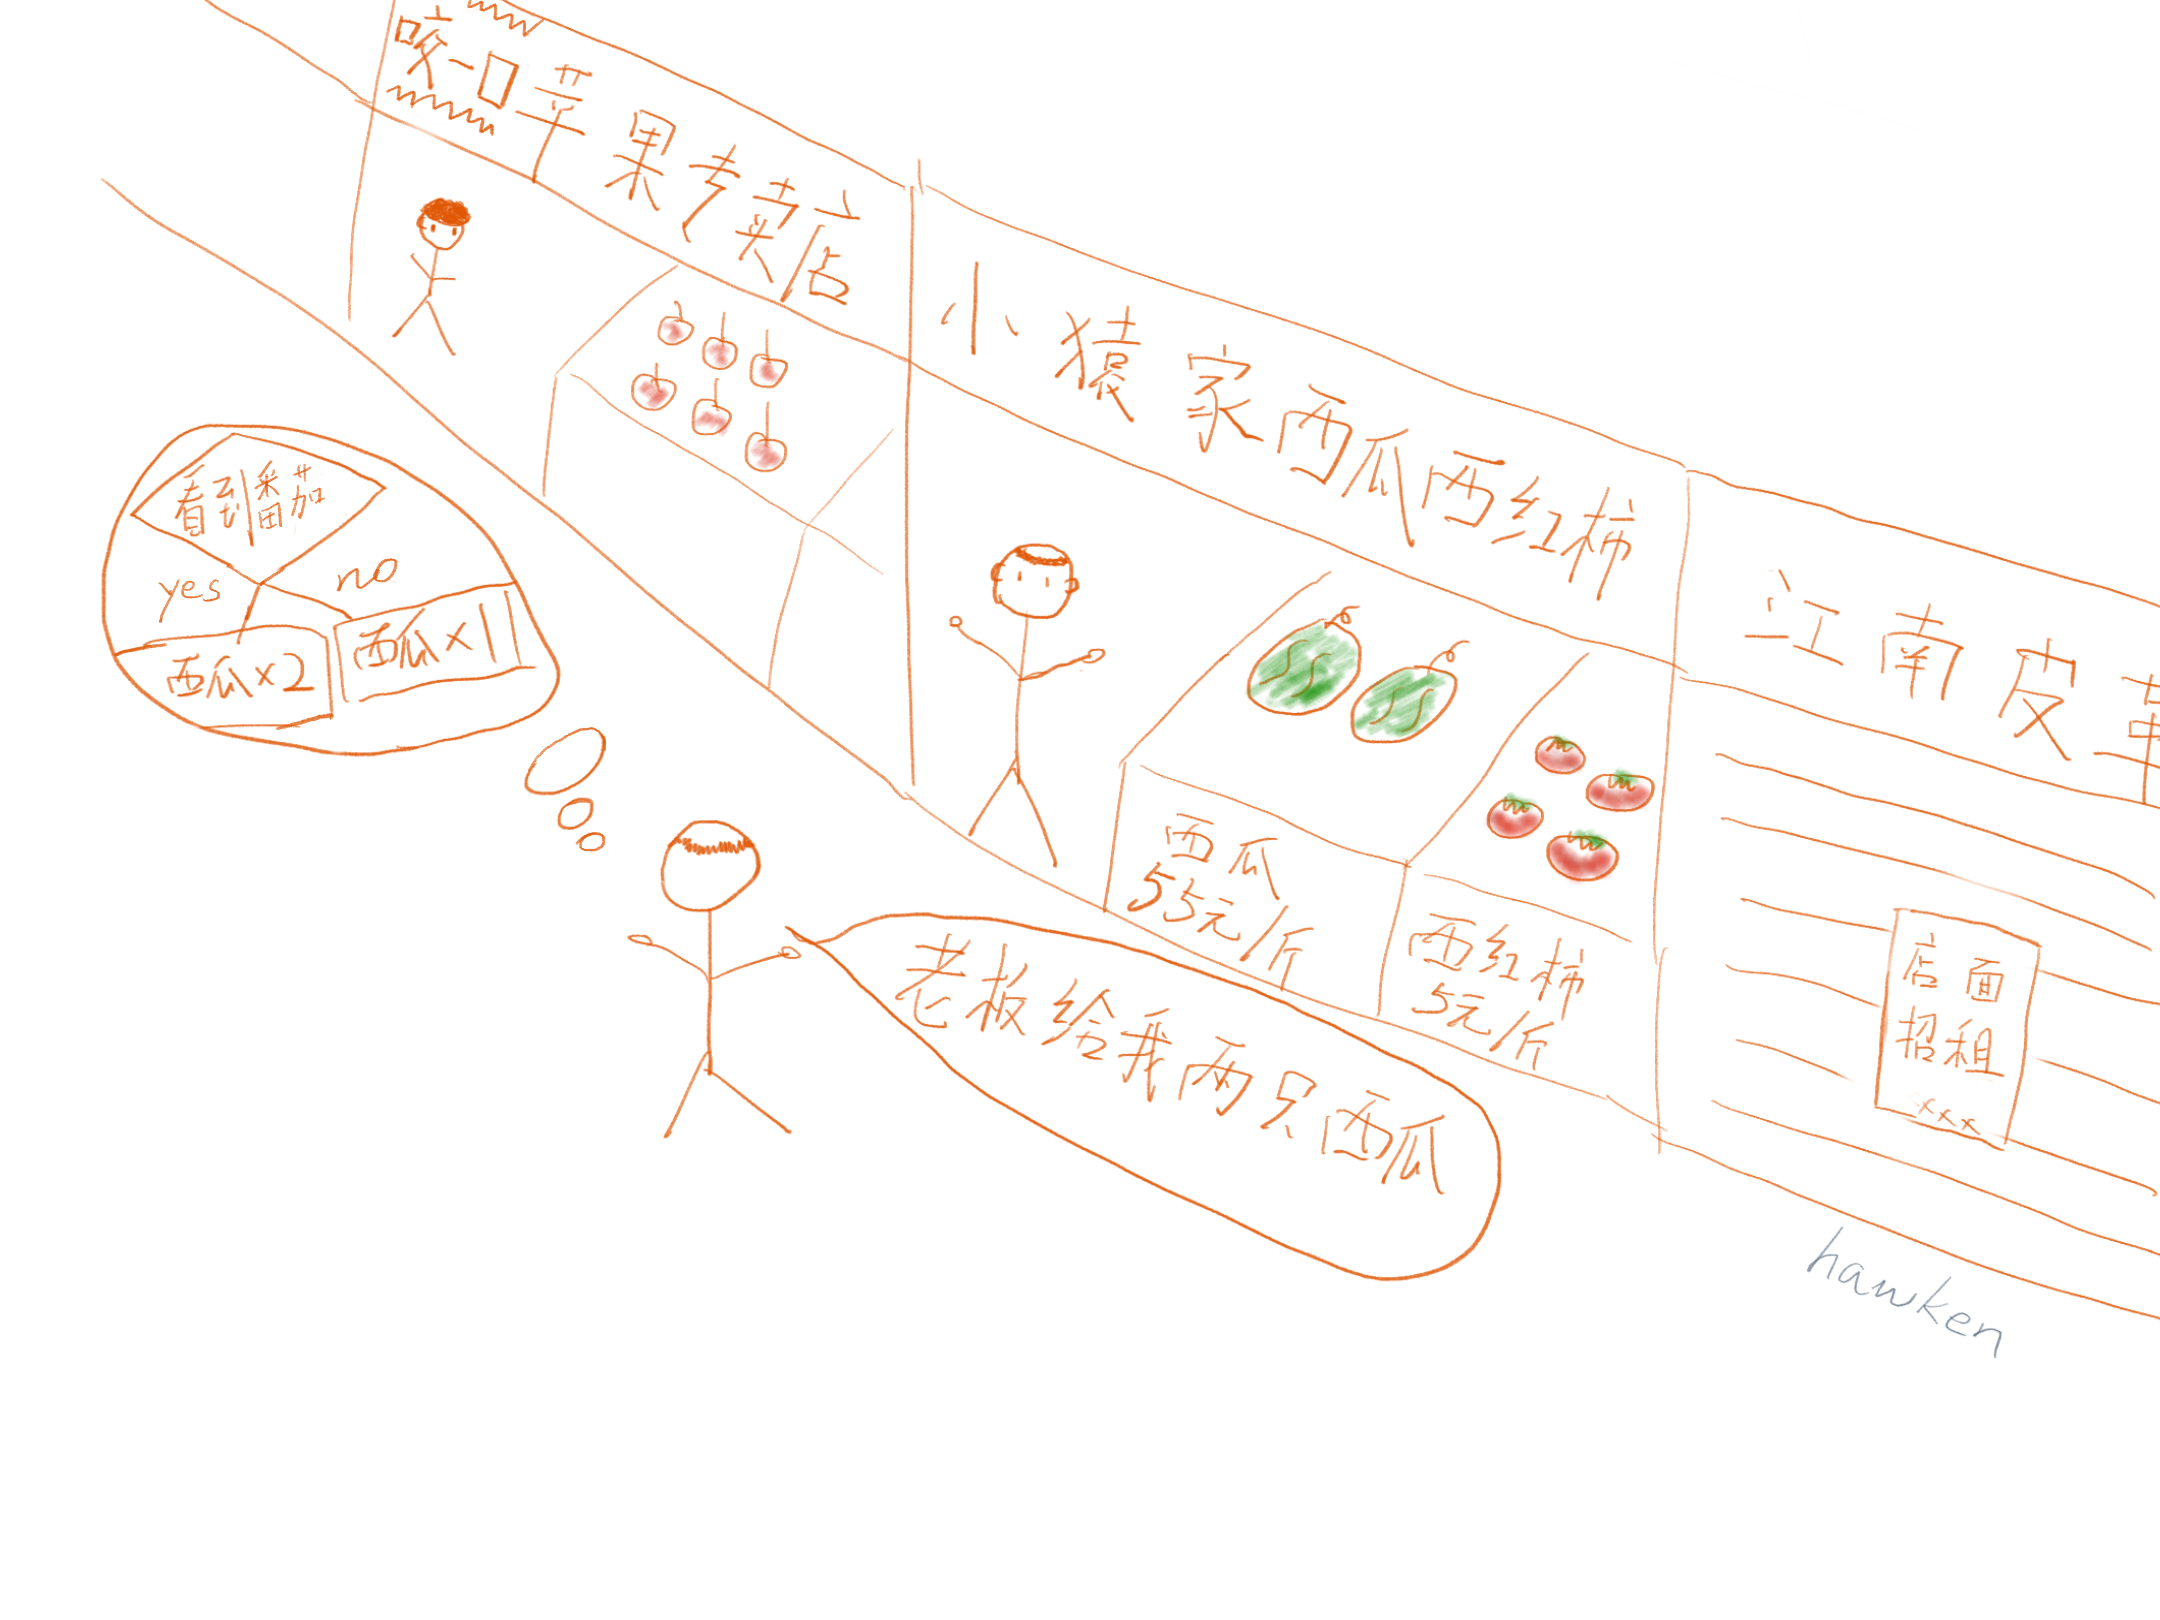 咬一口苹果专卖店
小猿家西瓜西红柿
江南皮革
看到番茄
yes
no
西瓜×2
西瓜×1
西瓜
55元/斤
西红柿
5元/斤
老板给我两只西瓜
店面
招租
xxx
hawken